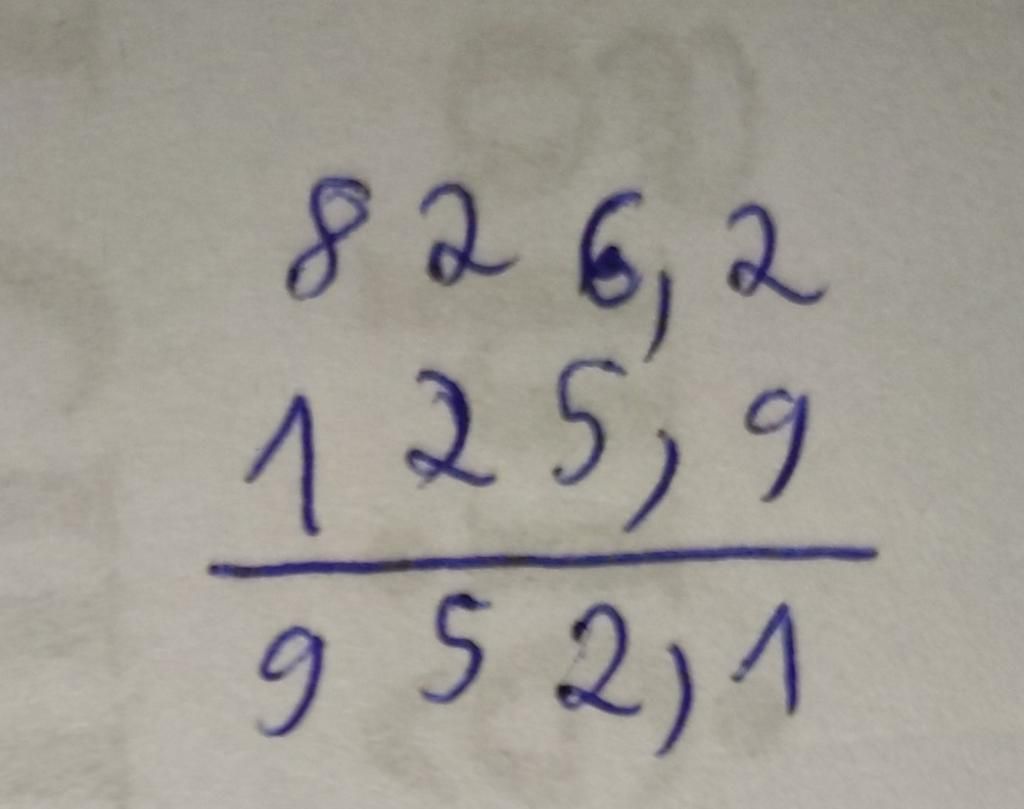 826,2
125,9
952,1